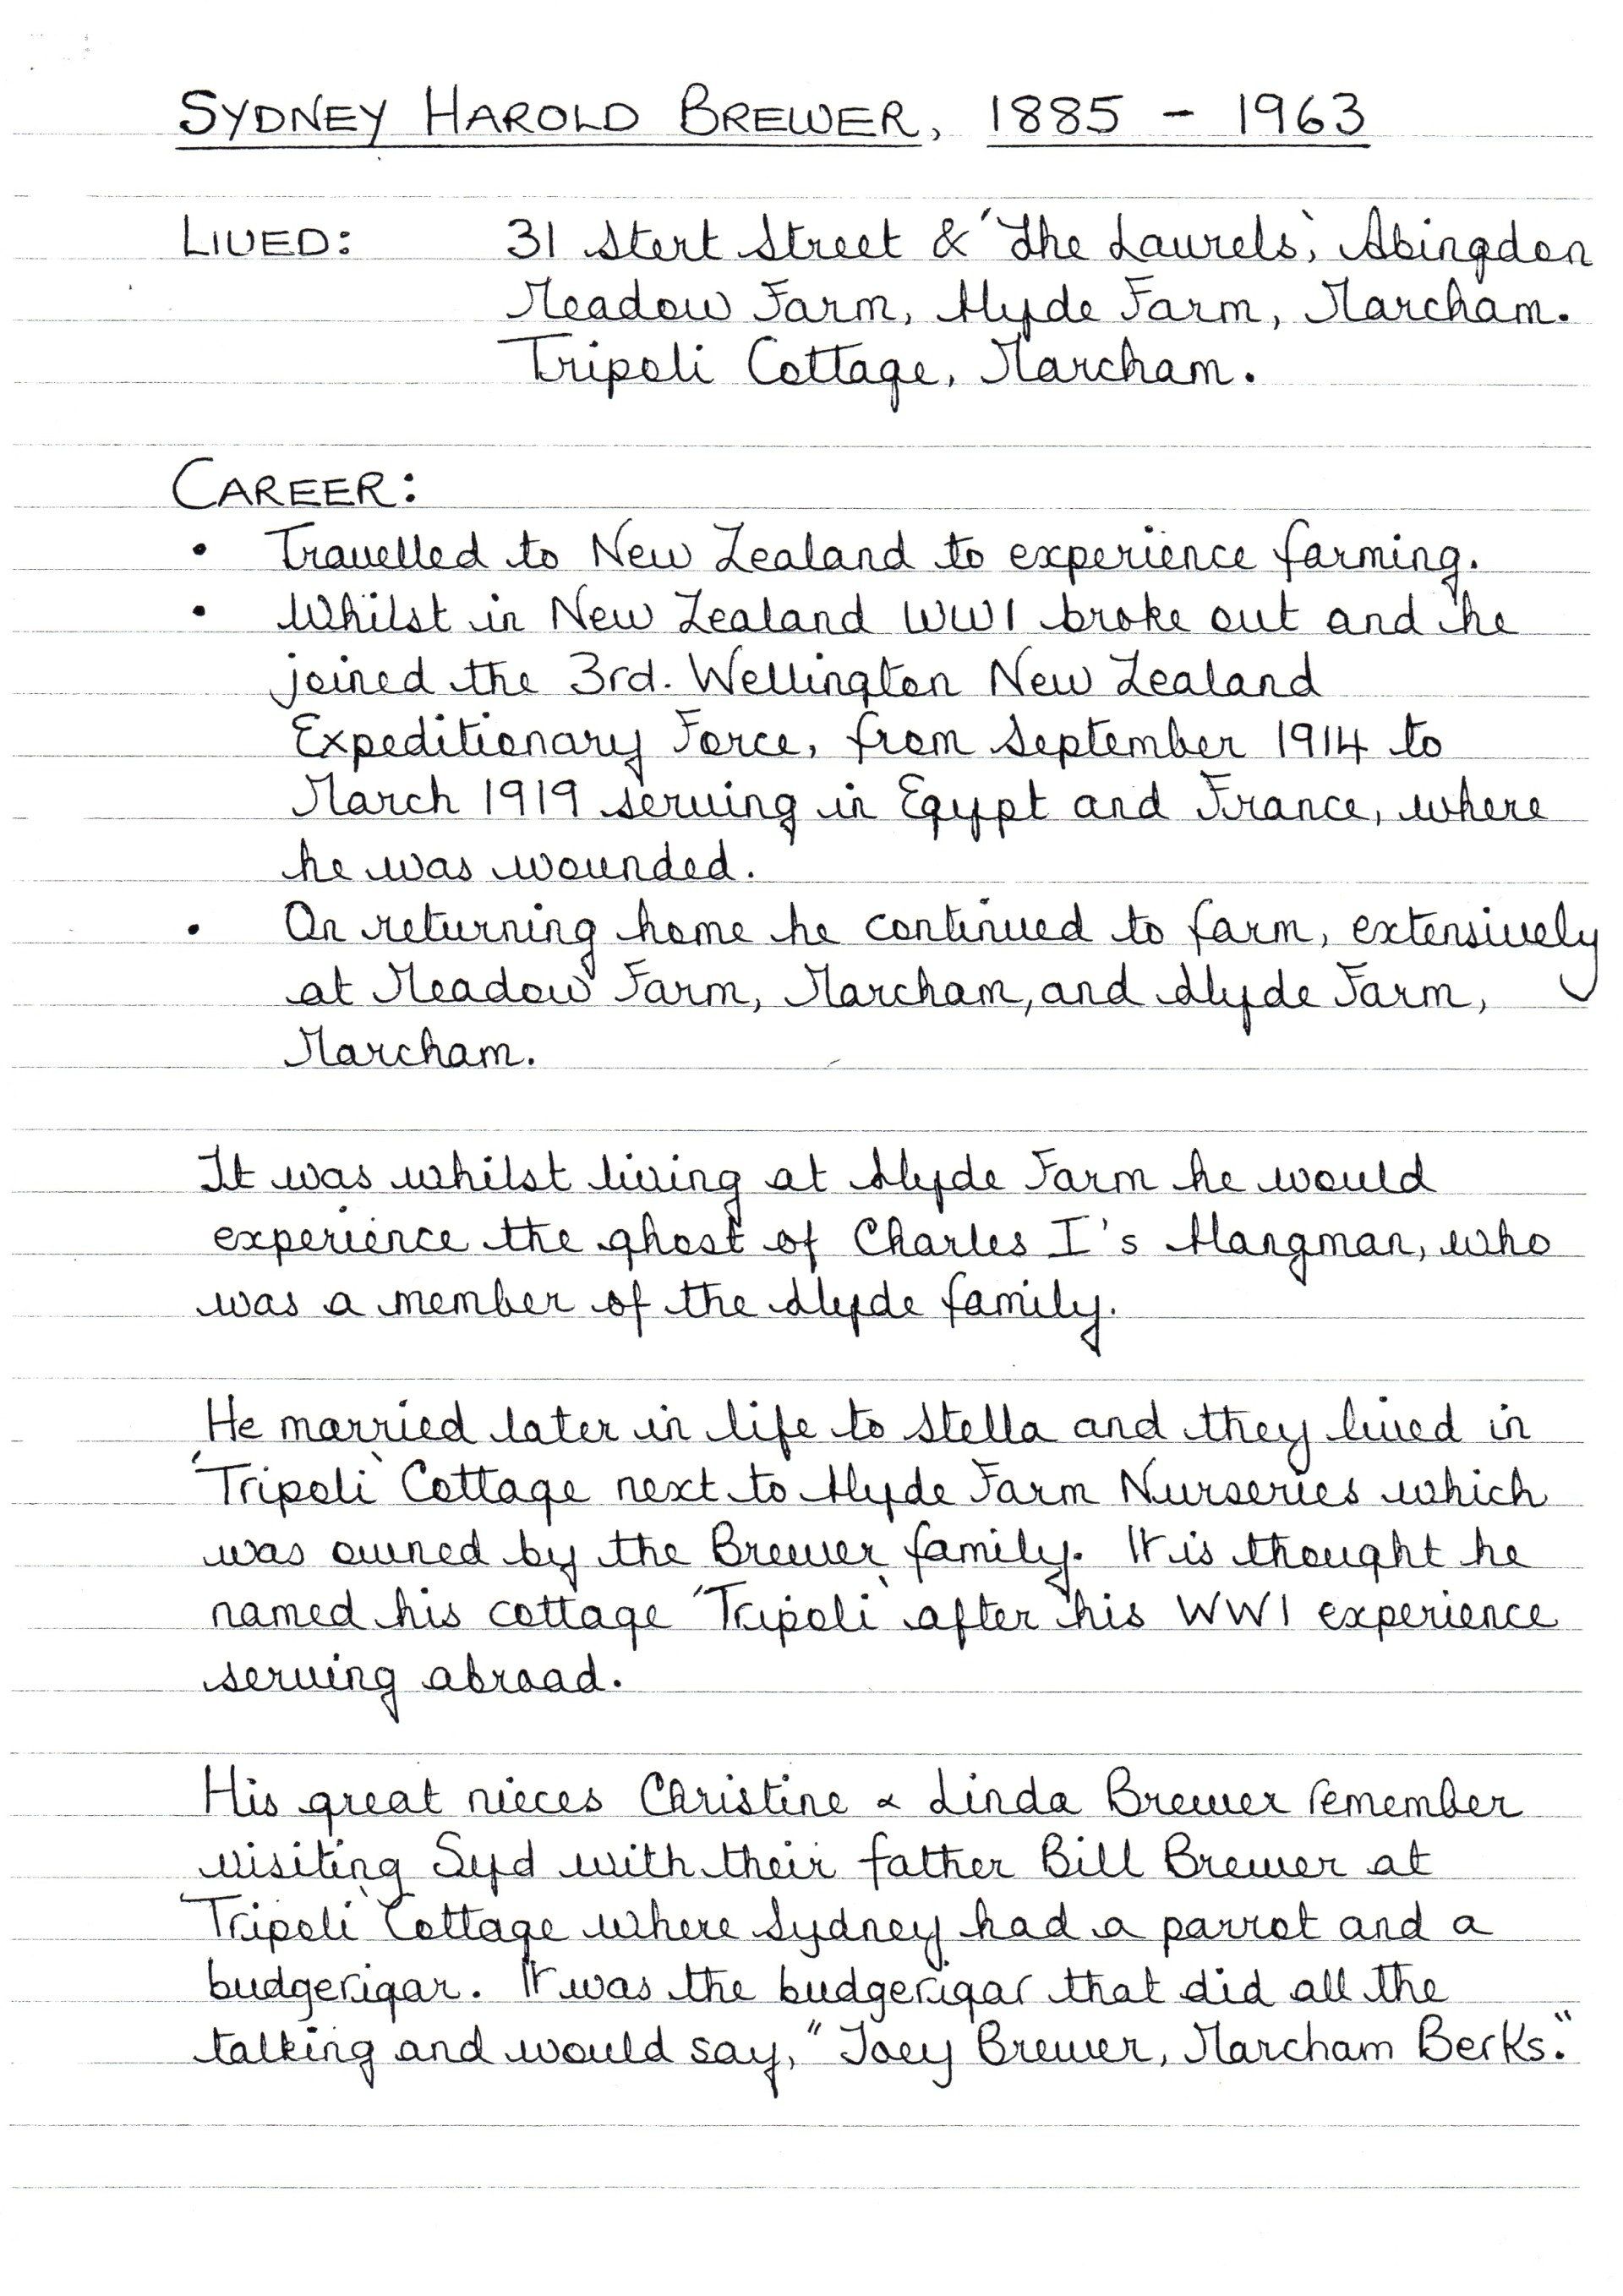 SYDNEY HAROLD BREWER, 1885 - 1963
LIVED: 31 Stert Street & 'The Laurels', Abingdon
Meadow Farm, Hyde Farm, Marcham.
Tripoli Cottage, Marcham.
CAREER:
• Travelled to New Zealand to experience farming.
• Whilst in New Zealand WW1 broke out and he
joined the 3rd. Wellington New Zealand
Expeditionary Force, from September 1914 to
March 1919 serving in Egypt and France, where
he was wounded.
• On returning home he continued to farm, extensively
at Meadow Farm, Marcham, and Hyde Farm,
Marcham.
It was whilst living at Hyde Farm he would
experience the ghost of Charles I's Hangman, who
was a member of the Hyde family.
He married later in life to Stella and they lived in
'Tripoli' Cottage next to Hyde Farm Nurseries which
was owned by the Brewer family. It is thought he
named his cottage 'Tripoli' after his WW1 experience
serving abroad.
His great nieces Christine & Linda Brewer remember
visiting Syd with their father Bill Brewer at
'Tripoli' Cottage where Sydney had a parrot and a
budgerigar. It was the budgerigar that did all the
talking and would say, "Joey Brewer, Marcham Berks."